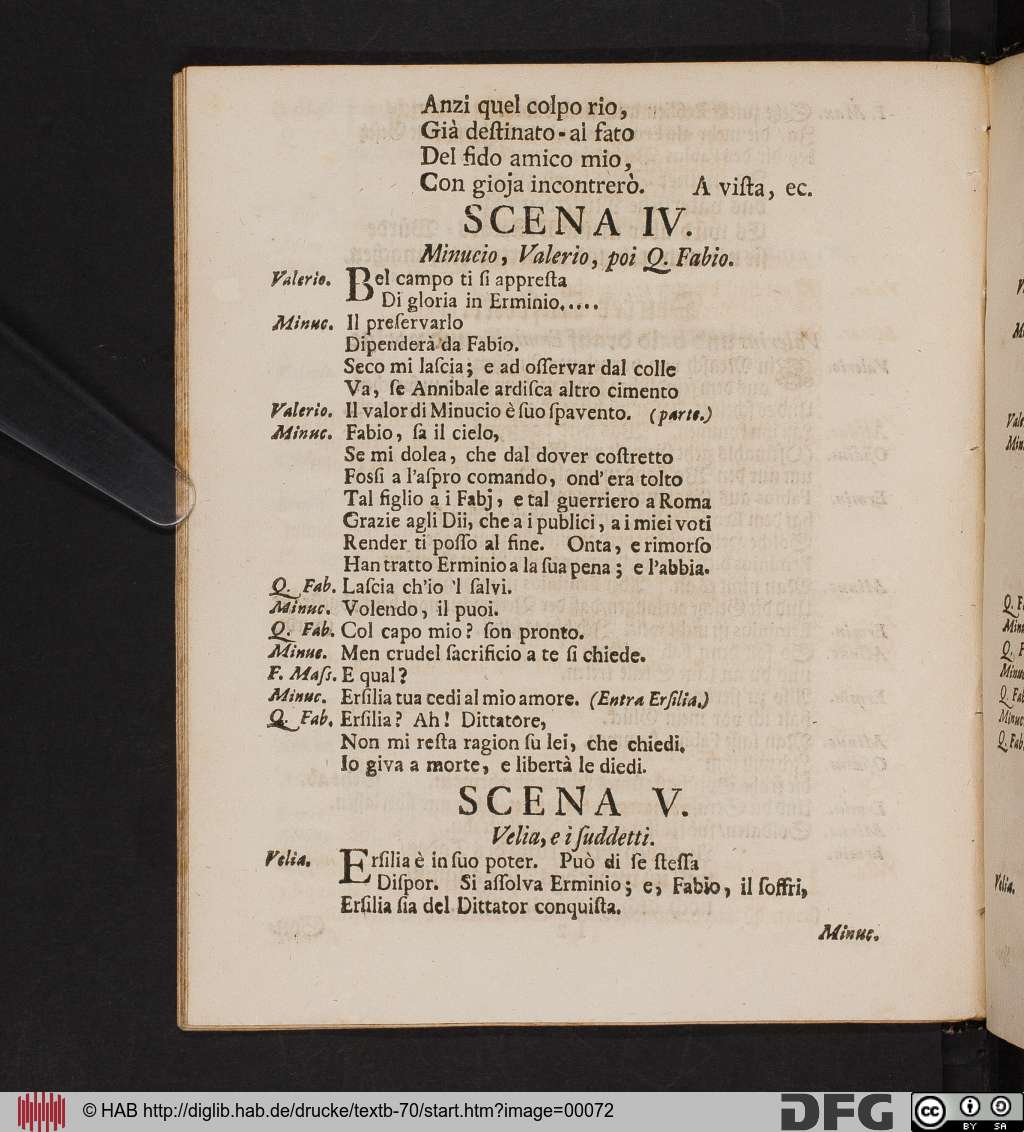 Anzi quel colpo rio,
Già deſtinato-al fato
Del fido amico mio,
Con gioja incontrerò. A viſta, ec.
SCENA IV.
Minucio, Valerio, poi Q. Fabio.
Valerio. Bel campo ti ſi appreſta
Di gloria in Erminio.....
Minuc. Il preſervarlo
Dipenderà da Fabio.
Seco mi laſcia; e ad oſſervar dal colle
Va, ſe Annibale ardiſca altro cimento
Valerio. Il valor di Minucio è ſuo ſpavento. (parte.)
Minuc. Fabio, ſa il cielo,
Se mi dolea, che dal dover coſtretto
Foſſi a l'aſpro comando, ond' era tolto
Tal figlio a i Fabj, e tal guerriero a Roma
Grazie agli Dii, che a i publici, a i miei voti
Render ti poſſo al fine. Onta, e rimorſo
Han tratto Erminio a la ſua pena; e l'abbia.
Q. Fab. Laſcia ch'io 'l ſalvi.
Minuc. Volendo, il puoi.
Q. Fab. Col capo mio? ſon pronto.
Minuc. Men crudel ſacrificio a te ſi chiede.
F. Maſs. E qual?
Minuc. Erſilia tua cedi al mio amore. (Entra Erſilia.)
Q. Fab. Erſilia? Ah! Dittatore,
Non mi reſta ragion ſu lei, che chiedi.
Io giva a morte, e libertà le diedi.
SCENA V.
Velia, e i ſuddetti.
Velia. Erſilia è in ſuo poter. Può di ſe ſteſſa
Diſpor. Si aſſolva Erminio; e, Fabio, il ſoffri,
Erſilia ſia del Dittator conquiſta.
Minuc.
© HAB http://diglib.hab.de/drucke/textb-70/start.htm?image=00072
DFG
cc BY SA